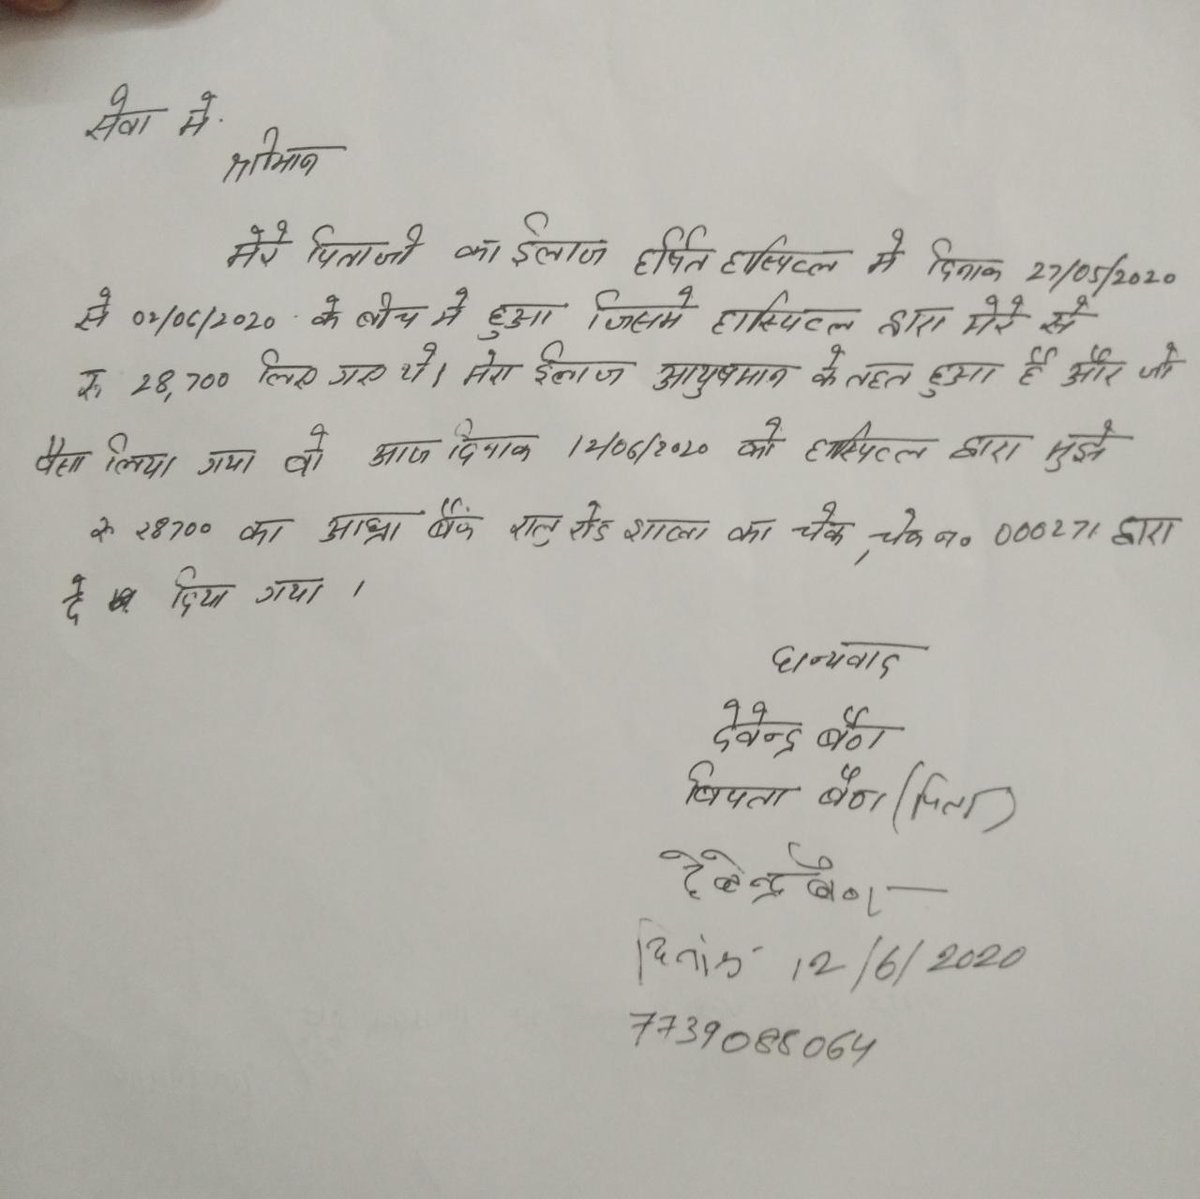 सेवा में.
श्रीमान
मेरे पिताजी का ईलाज हर्षित हास्पिटल मे दिनाक 27/05/2020
से 02/06/2020 के बीच मे हुआ जिसमे हास्पिटल द्वारा मेरे से
रु 28,700 लिए गए थे। मेरा ईलाज आयुषमान के तहत हुआ है और जो
पैसा लिया गया वो आज दिनाक 12/06/2020 को हास्पिटल द्वारा मुझे
रु 28700 का आध्रा बैंक रातु रोड शाखा का चेक, चेक न० 000271 द्वारा
दे दिया गया ।
धन्यवाद
देवेन्द्र बैठा
बिपता बैठा (पिता)
देवेन्द्र बैठा
दिनांक 12/6/2020
7739088064